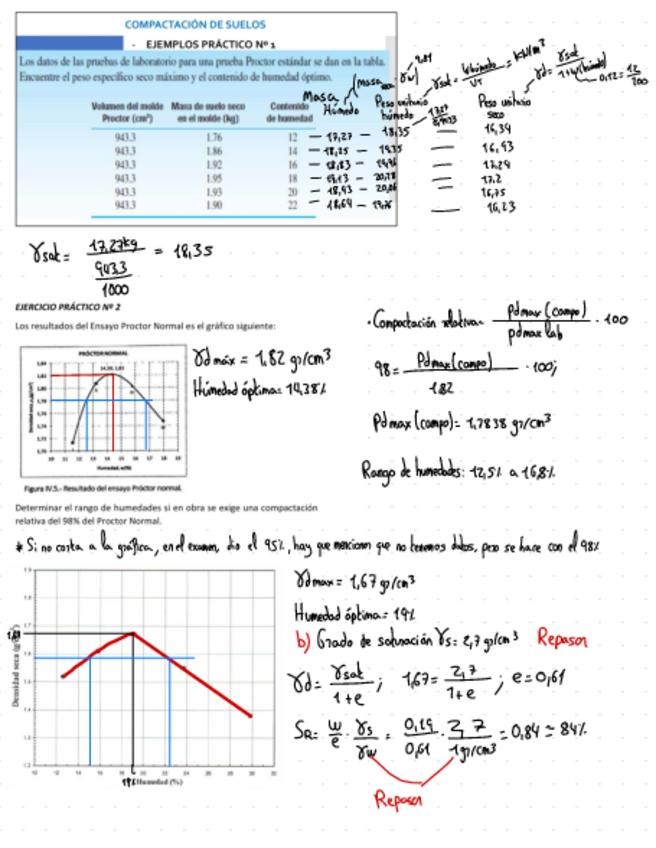 COMPACTACIÓN DE SUELOS
- EJEMPLOS PRÁCTICO Nº 1
Los datos de las pruebas de laboratorio para una prueba Proctor estándar se dan en la tabla.
Encuentre el peso específico seco máximo y el contenido de humedad óptimo.
Volumen del molde Proctor (cm³) Masa de suelo seco en el molde (kg) Contenido de humedad Masa Húmedo Peso unitario húmedo Peso unitario seco
943.3 1.76 12 — 17,27 — 18,35 — 16,39
943.3 1.86 14 — 18,25 — 19,35 — 16,93
943.3 1.92 16 — 18,83 — — 17,29
943.3 1.95 18 — 19,13 — — 17,2
943.3 1.93 20 — 18,93 — — 16,75
943.3 1.90 22 — 18,64 — — 16,23
γsat = 17,27kg / (943.3 / 1000) = 18,35
EJERCICIO PRÁCTICO Nº 2
Los resultados del Ensayo Proctor Normal es el gráfico siguiente:
PRÓCTOR NORMAL
Humedad, w(%)
Figura IV.5.- Resultado del ensayo Próctor normal.
γd máx = 1,82 gr/cm³
Húmedad óptima= 14,38%
· Compactación relativa= ρdmax (campo) / ρdmax lab · 100
98 = ρdmax (campo) / 1.82 · 100;
ρdmax (campo) = 1,7838 gr/cm³
Rango de humedades: 12,5% a 16,8%
Determinar el rango de humedades si en obra se exige una compactación
relativa del 98% del Proctor Normal.
* Si no corta a la gráfica, en el examen, dio el 95%, hay que mencionar que no tenemos datos, pero se hace con el 98%
Densidad seca
10 12 14 16 20 22 24 26 28 30
Humedad (%)
γdmax = 1,67 gr/cm³
Humedad óptima= 19%
b) Grado de saturación γs = 2,7 gr/cm³ Repasar
γd = γsat / 1+e ; 1,67 = 2,7 / 1+e ; e = 0,61
SR = w/e · γs/γw = 0,19/0,61 · 2,7 / 1gr/cm³ = 0,84 ≃ 84%
Repasar